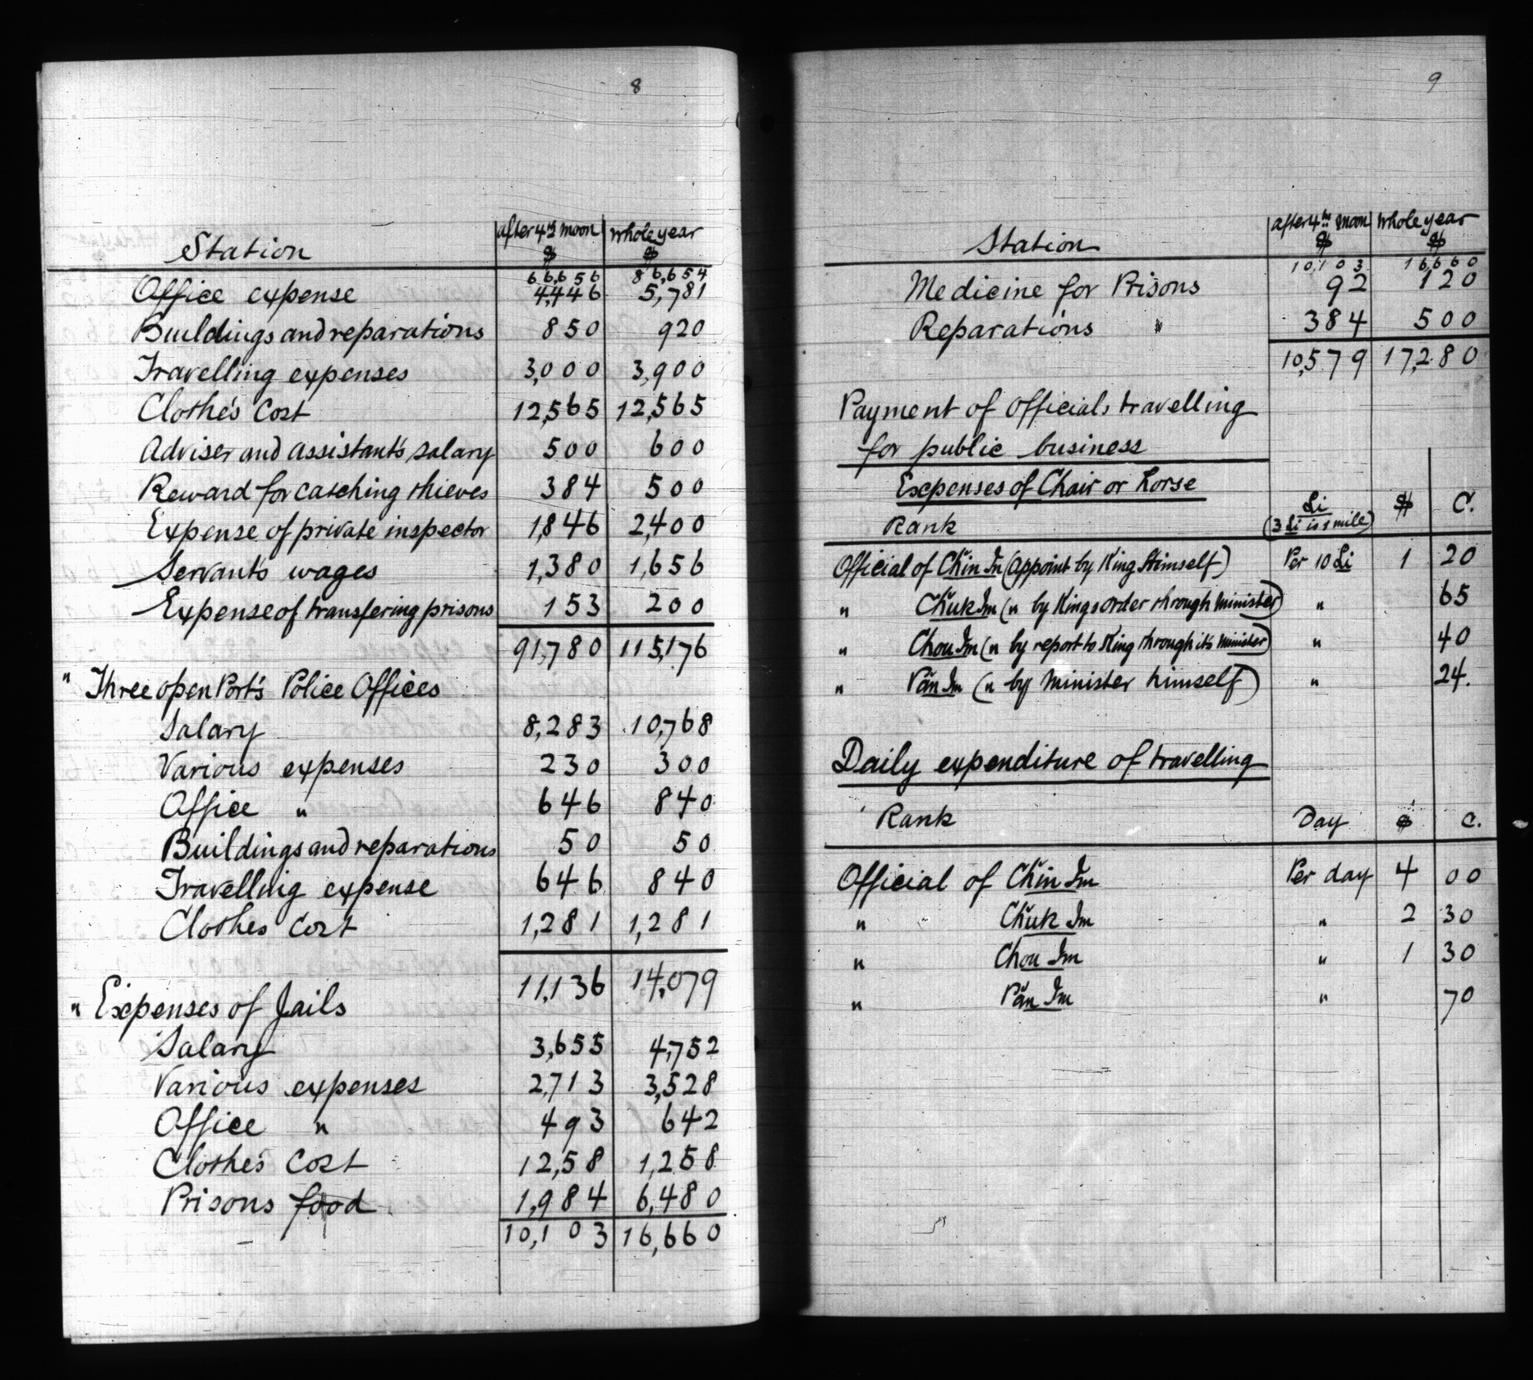 8
Station after 4th moon $ whole year $
66656 86,654
Office expense 4,446 5,781
Buildings and reparations 850 920
Travelling expenses 3,000 3,900
Clothe's Cost 12,565 12,565
Adviser and assistant's salary 500 600
Reward for catching thieves 384 500
Expense of private inspector 1,846 2,400
Servant's wages 1,380 1,656
Expense of transfering prisons 153 200
91,780 115,176
" Three open Port's Police Offices
Salary 8,283 10,768
Various expenses 230 300
Office " 646 840
Buildings and reparations 50 50
Travelling expense 646 840
Clothes Cost 1,281 1,281
11,136 14,079
" Expenses of Jails
Salary 3,655 4,752
Various expenses 2,713 3,528
Office " 493 642
Clothe's Cost 12,58 1,258
Prisons food 1,984 6,480
10,103 16,660
9
Station after 4th moon $ whole year $
10,103 16,660
Medicine for Prisons 92 120
Reparations " 384 500
10,579 17,280
Payment of officials travelling
for public business
Expenses of Chair or horse
Rank Li (3 Li is 1 mile) $ C.
Official of Chin Im (appoint by King Himself) Per 10 Li 1 20
" Chuk Im (" by Kings order through minister) " 65
" Chou Im (" by report to King through it's minister) " 40
" Păn Im (" by Minister himself) " 24.
Daily expenditure of travelling
Rank Day $ C.
Official of Chin Im Per day 4 00
" Chuk Im " 2 30
" Chou Im " 1 30
" Păn Im " 70